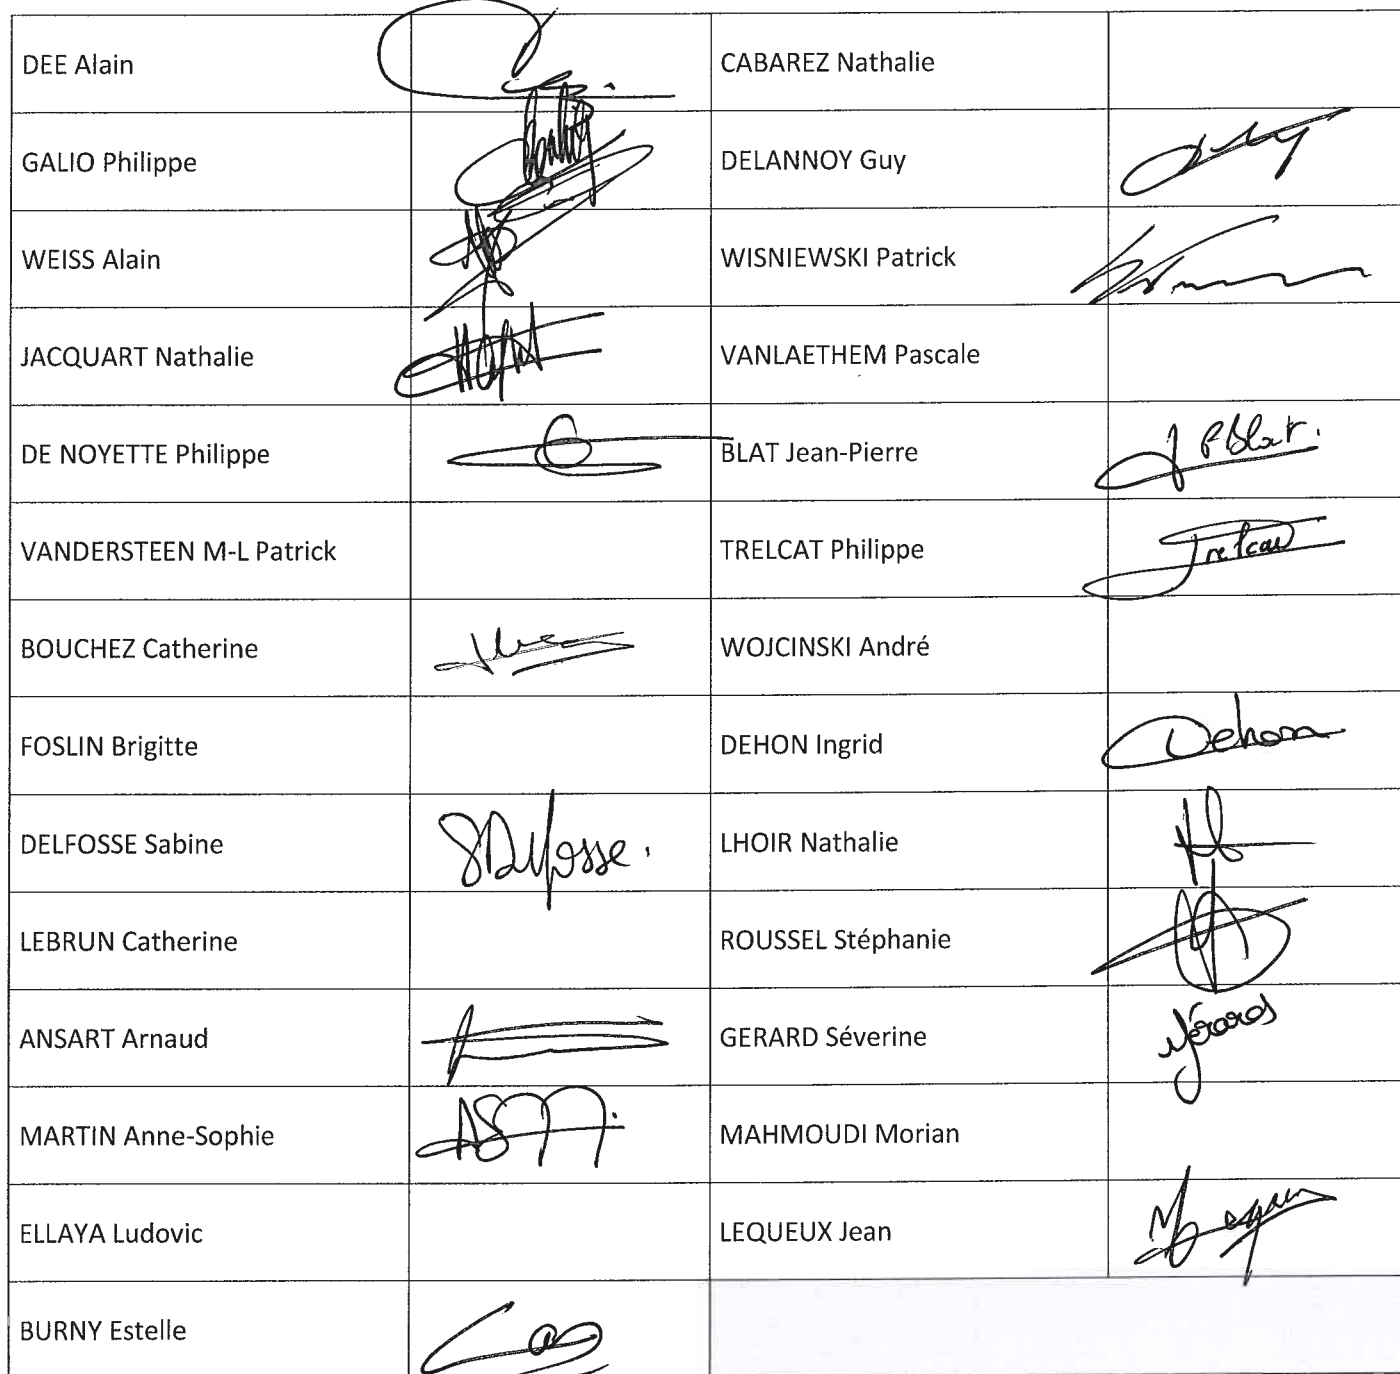 DEE Alain
CABAREZ Nathalie
GALIO Philippe
DELANNOY Guy
WEISS Alain
WISNIEWSKI Patrick
JACQUART Nathalie
VANLAETHEM Pascale
DE NOYETTE Philippe
BLAT Jean-Pierre
JP Blat.
VANDERSTEEN M-L Patrick
TRELCAT Philippe
Trelcat
BOUCHEZ Catherine
WOJCINSKI André
FOSLIN Brigitte
DEHON Ingrid
Dehon
DELFOSSE Sabine
SDelfosse.
LHOIR Nathalie
LEBRUN Catherine
ROUSSEL Stéphanie
ANSART Arnaud
GERARD Séverine
Gérard
MARTIN Anne-Sophie
MAHMOUDI Morian
ELLAYA Ludovic
LEQUEUX Jean
BURNY Estelle